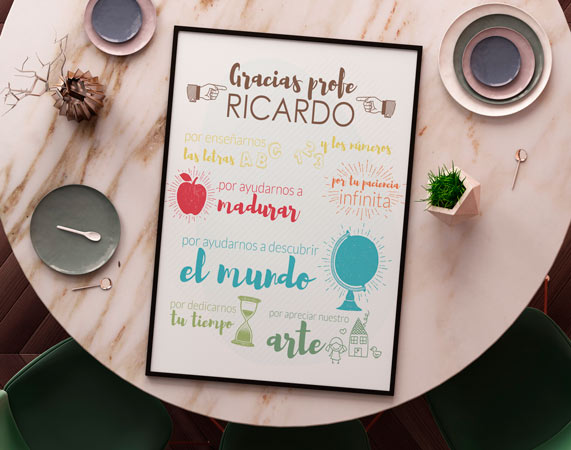 Gracias profe
RICARDO
por enseñarnos
las letras A B C
1 2 3 y los números
por ayudarnos a
madurar
por tu paciencia
infinita
por ayudarnos a descubrir
el mundo
por dedicarnos
tu tiempo
por apreciar nuestro
arte